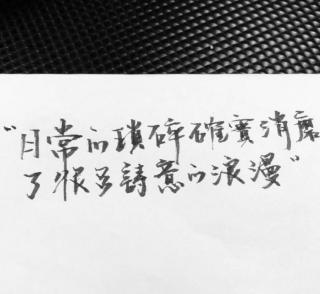 “日常的瑣碎確實消磨
了很多詩意的浪漫”